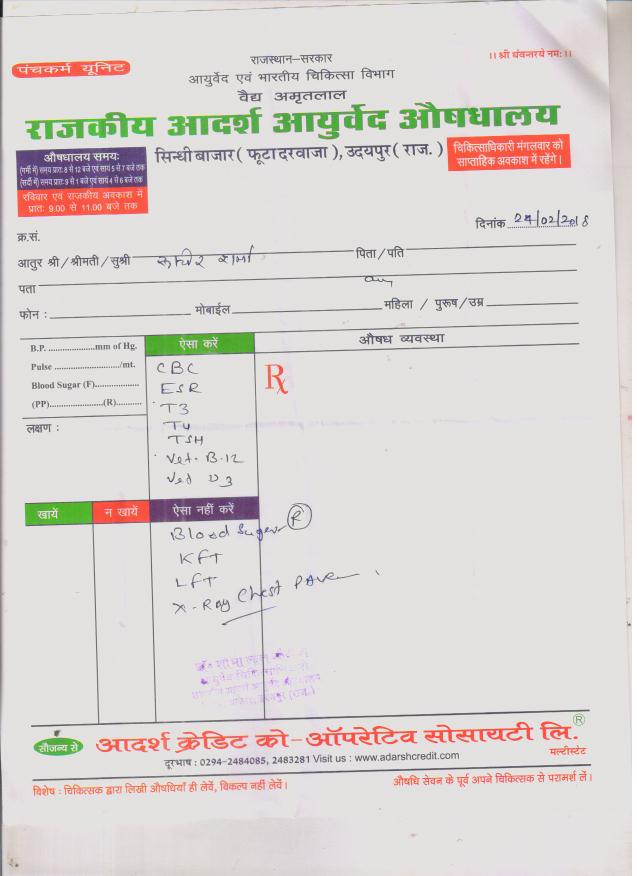 राजस्थान–सरकार
।। श्री धंवन्तरये नमः ।।
पंचकर्म यूनिट
आयुर्वेद एवं भारतीय चिकित्सा विभाग
वैद्य अमृतलाल
राजकीय आदर्श आयुर्वेद औषधालय
औषधालय समयः
(गर्मी में) समय प्रातः 8 से 12 बजे एवं सायं 5 से 7 बजे तक
(सर्दी में) समय प्रातः 9 से 1 बजे एवं सायं 4 से 6 बजे तक
रविवार एवं राजकीय अवकाश में
प्रातः 9.00 से 11.00 बजे तक
सिन्धी बाजार ( फूटा दरवाजा ), उदयपुर ( राज. )
चिकित्साधिकारी मंगलवार को
साप्ताहिक अवकाश में रहेंगे।
क्र.सं.
दिनांक 24/02/2018
आतुर श्री / श्रीमती / सुश्री शर्मा पिता / पति
पता
फोन : मोबाईल महिला / पुरूष / उम्र
B.P. ....................mm of Hg.
Pulse ......................../mt.
Blood Sugar (F)..................
(PP).......................(R)...........
लक्षण :
ऐसा करें
औषध व्यवस्था
Rx
CBC
ESR
T3
T4
TSH
Vet. B.12
Vet D3
खायें
न खायें
ऐसा नहीं करें
Blood Suger (R)
KFT
LFT
X-Ray Chest PAve
आयुर्वेद
सौजन्य से
आदर्श क्रेडिट को-ऑपरेटिव सोसायटी लि. ®
मल्टीस्टेट
दूरभाष : 0294-2484085, 2483281 Visit us : www.adarshcredit.com
विशेष : चिकित्सक द्वारा लिखी औषधियाँ ही लेवें, विकल्प नहीं लेवें।
औषधि सेवन के पूर्व अपने चिकित्सक से परामर्श लें।